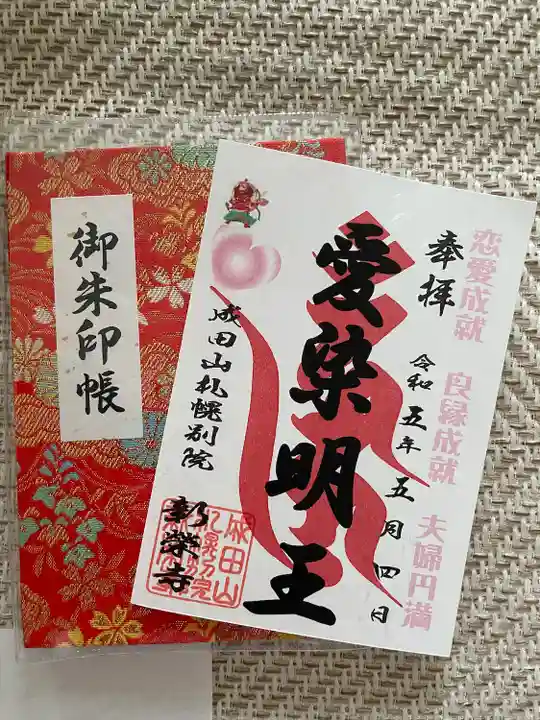 御朱印帳
恋愛成就 良縁成就 夫婦円満
奉拝
令和五年五月四日
愛染明王
成田山札幌別院
新榮寺